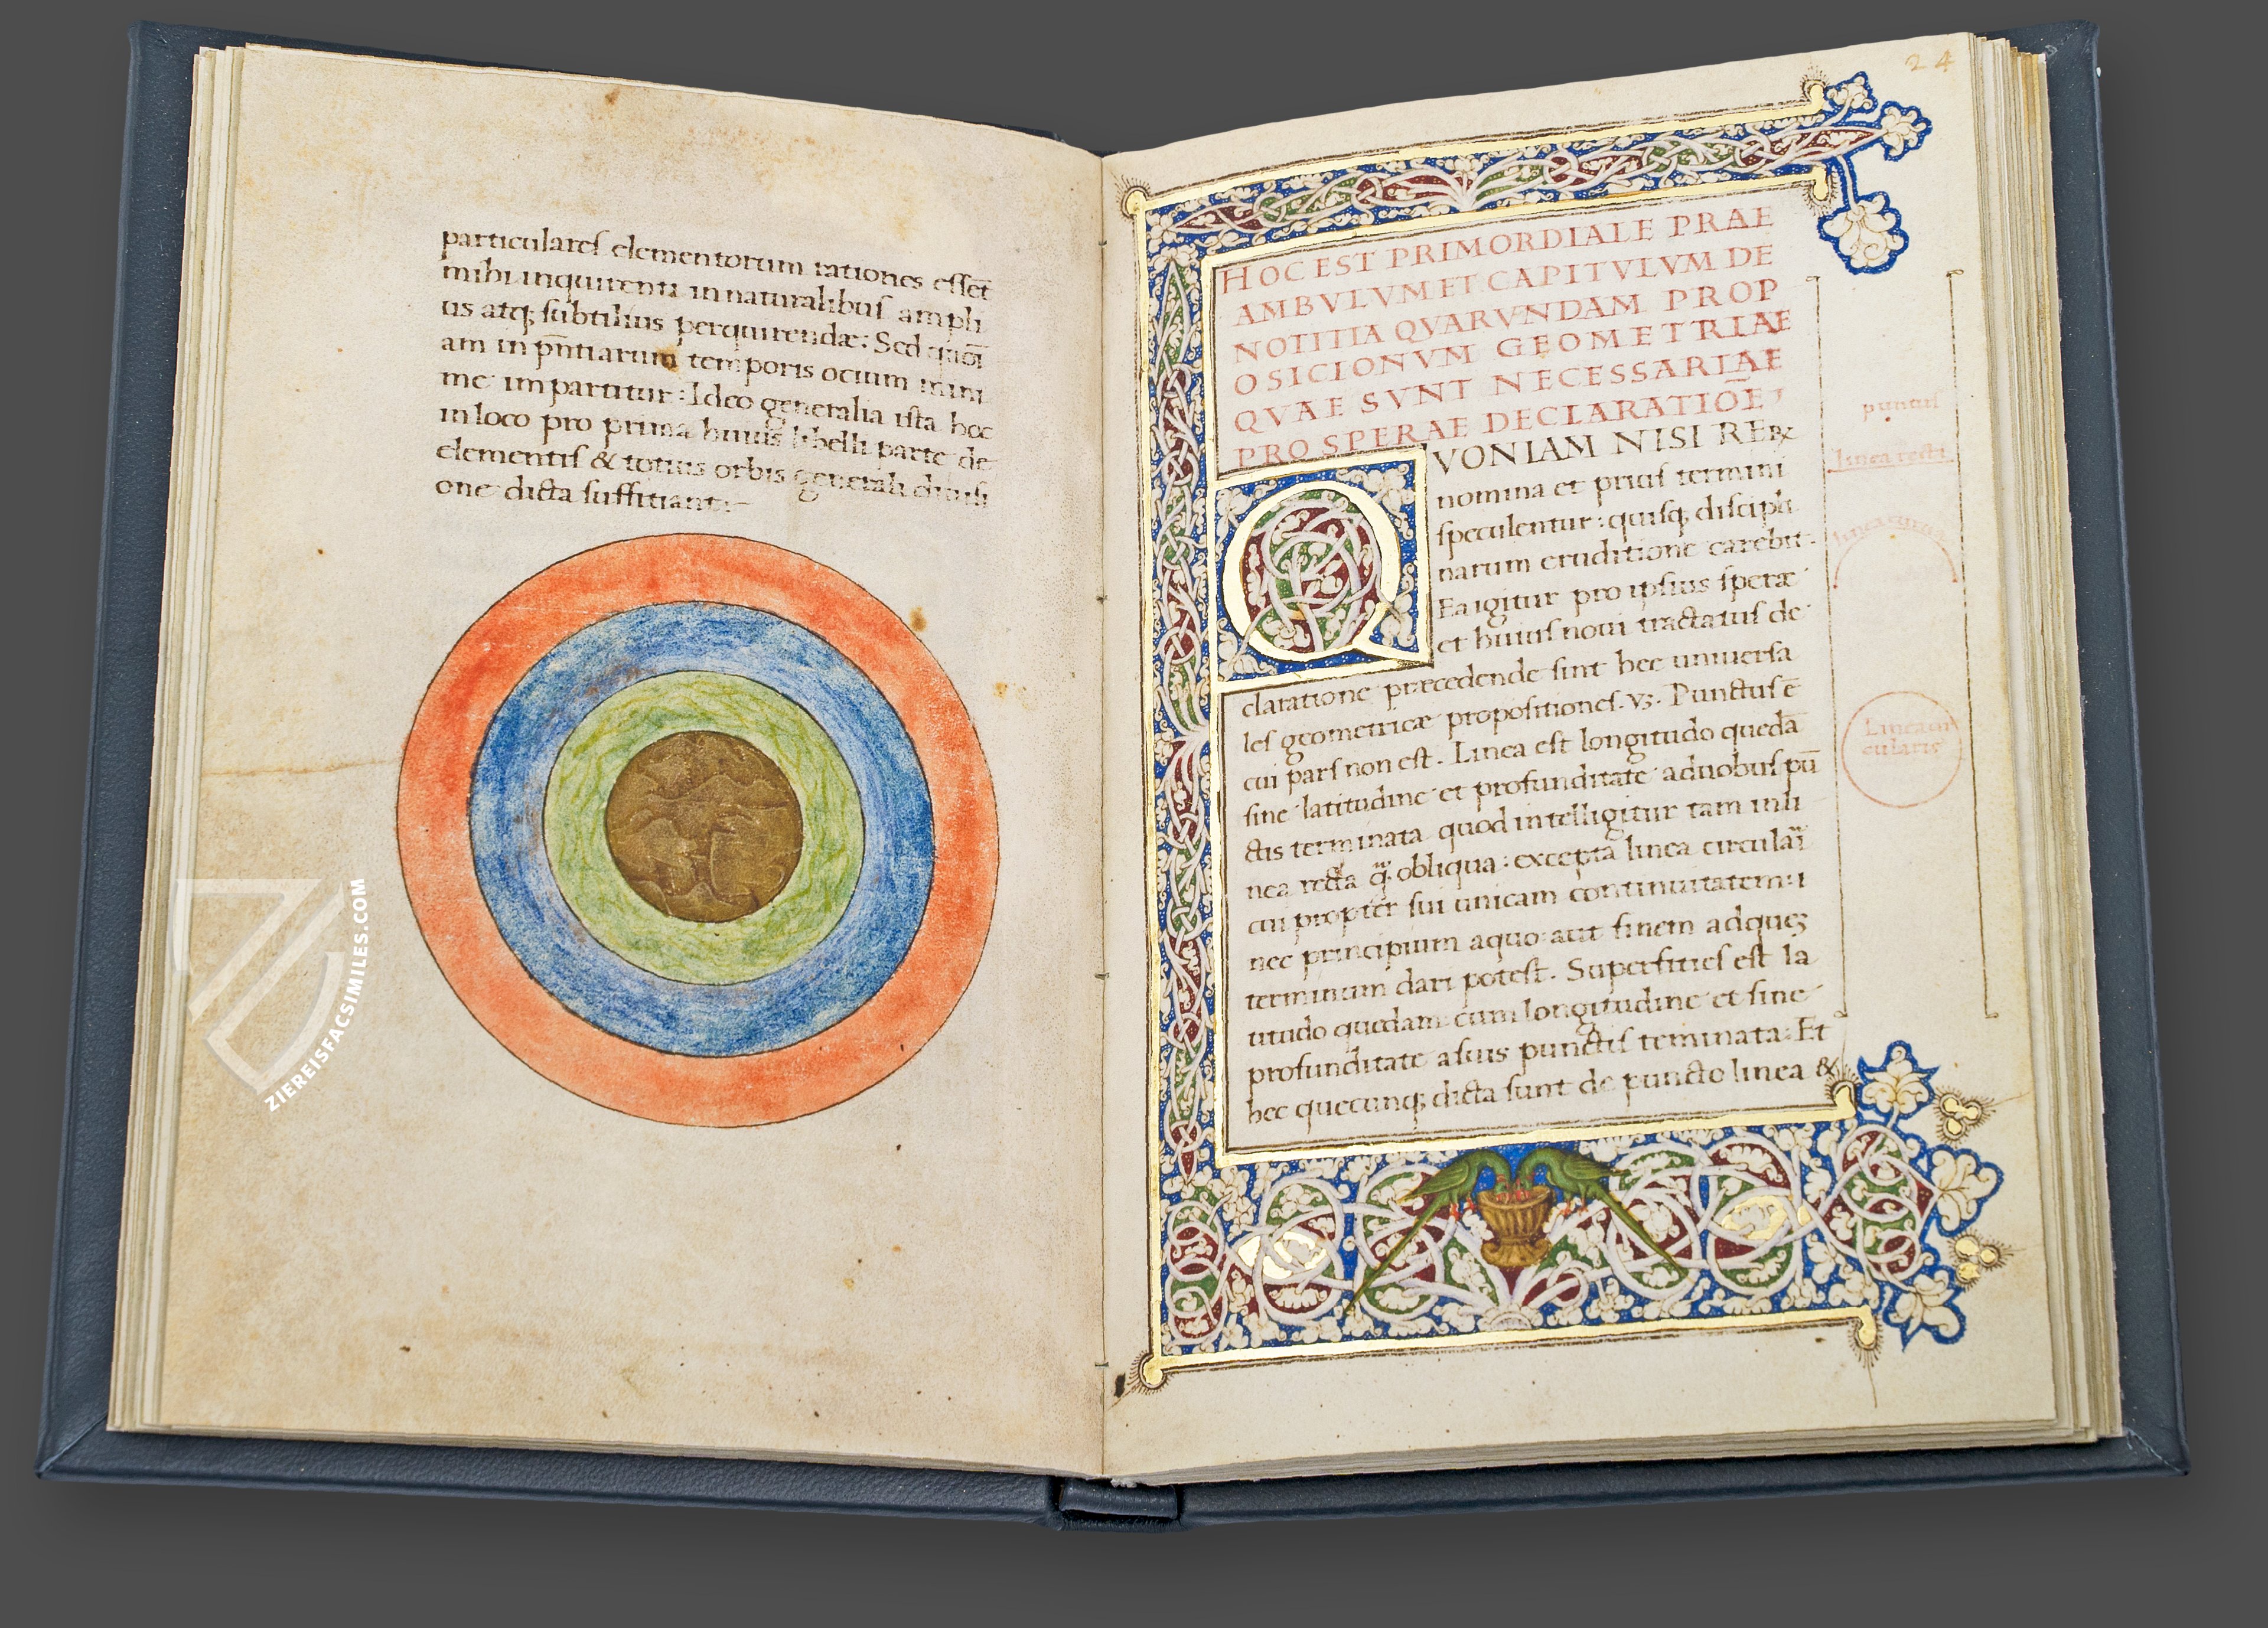 particulares elementorum rationes essēt
mihi inquirenti in naturalibus ampli
us atq; subtilius perquirendæ: Sed quoī
am in pn̄tiarum temporis ocium mini
me impartitur: Ideo generalia ista hoc
in loco pro prima huius libelli parte de
elementis & totius orbis generali diuisi
one dicta suffitiant:-
ZIEREISFACSIMILES.COM
24
HOC EST PRIMORDIALE PRAE
AMBVLVM ET CAPITVLVM DE
NOTITIA QVARVNDAM PROP
OSICIONVM GEOMETRIAE
QVAE SVNT NECESSARIAE
PRO SPERAE DECLARATIOĒ
QVONIAM NISI RERꝝ
nomina et prius termini
speculentur: quisq; discipli
narum eruditione carebit.
Ea igitur pro ipsius speræ
et huius noui tractatus de
claratione præcedende sint hec uniuersa
les geometricæ propositiones. vꝫ. Punctus ē
cui pars non est. Linea est longitudo quedā
sine latitudine et profunditate aduobus pū
ctis terminata quod intelligitur tam in li
nea recta q̄ obliqua: excepta linea circulari
cui propter sui unicam continuitatem
nec principium aquo aut finem ad queꝫ
terminum dari potest. Superfities est la
titudo quedam cum longitudine et sine
profunditate asuis punctis teminata: Et
hec quecunq; dicta sunt de puncto linea &
punctus
linea recta
linea curua
Linea cir
cularis